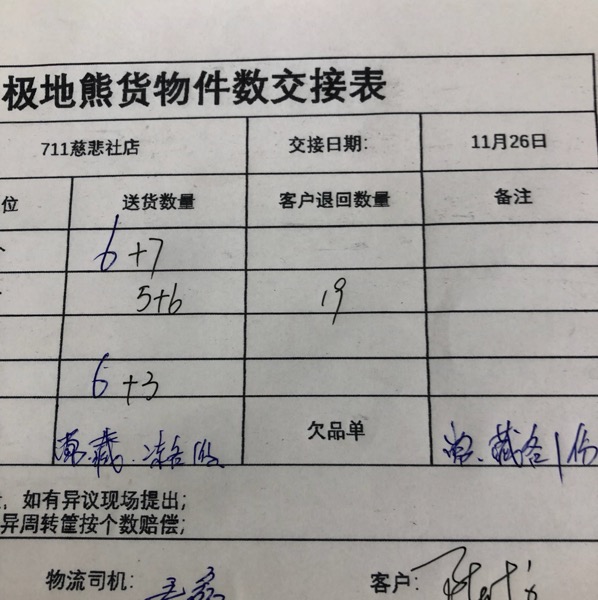 极地熊货物件数交接表
711慈悲社店 交接日期: 11月26日
位 送货数量 客户退回数量 备注
6+7
5+6 19
6+3
欠品单
, 如有异议现场提出;
异周转筐按个数赔偿;
物流司机: 客户: